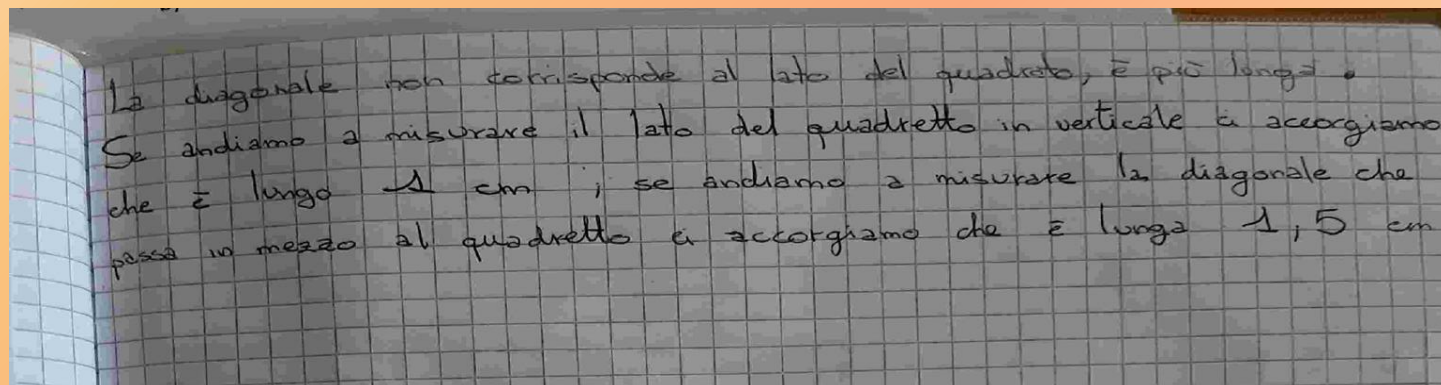 La diagonale non corrisponde al lato del quadrato, è più lunga.
Se andiamo a misurare il lato del quadretto in verticale ci accorgiamo
che è lungo 1 cm ; se andiamo a misurare la diagonale che
passa in mezzo al quadretto ci accorghiamo che è lunga 1,5 cm